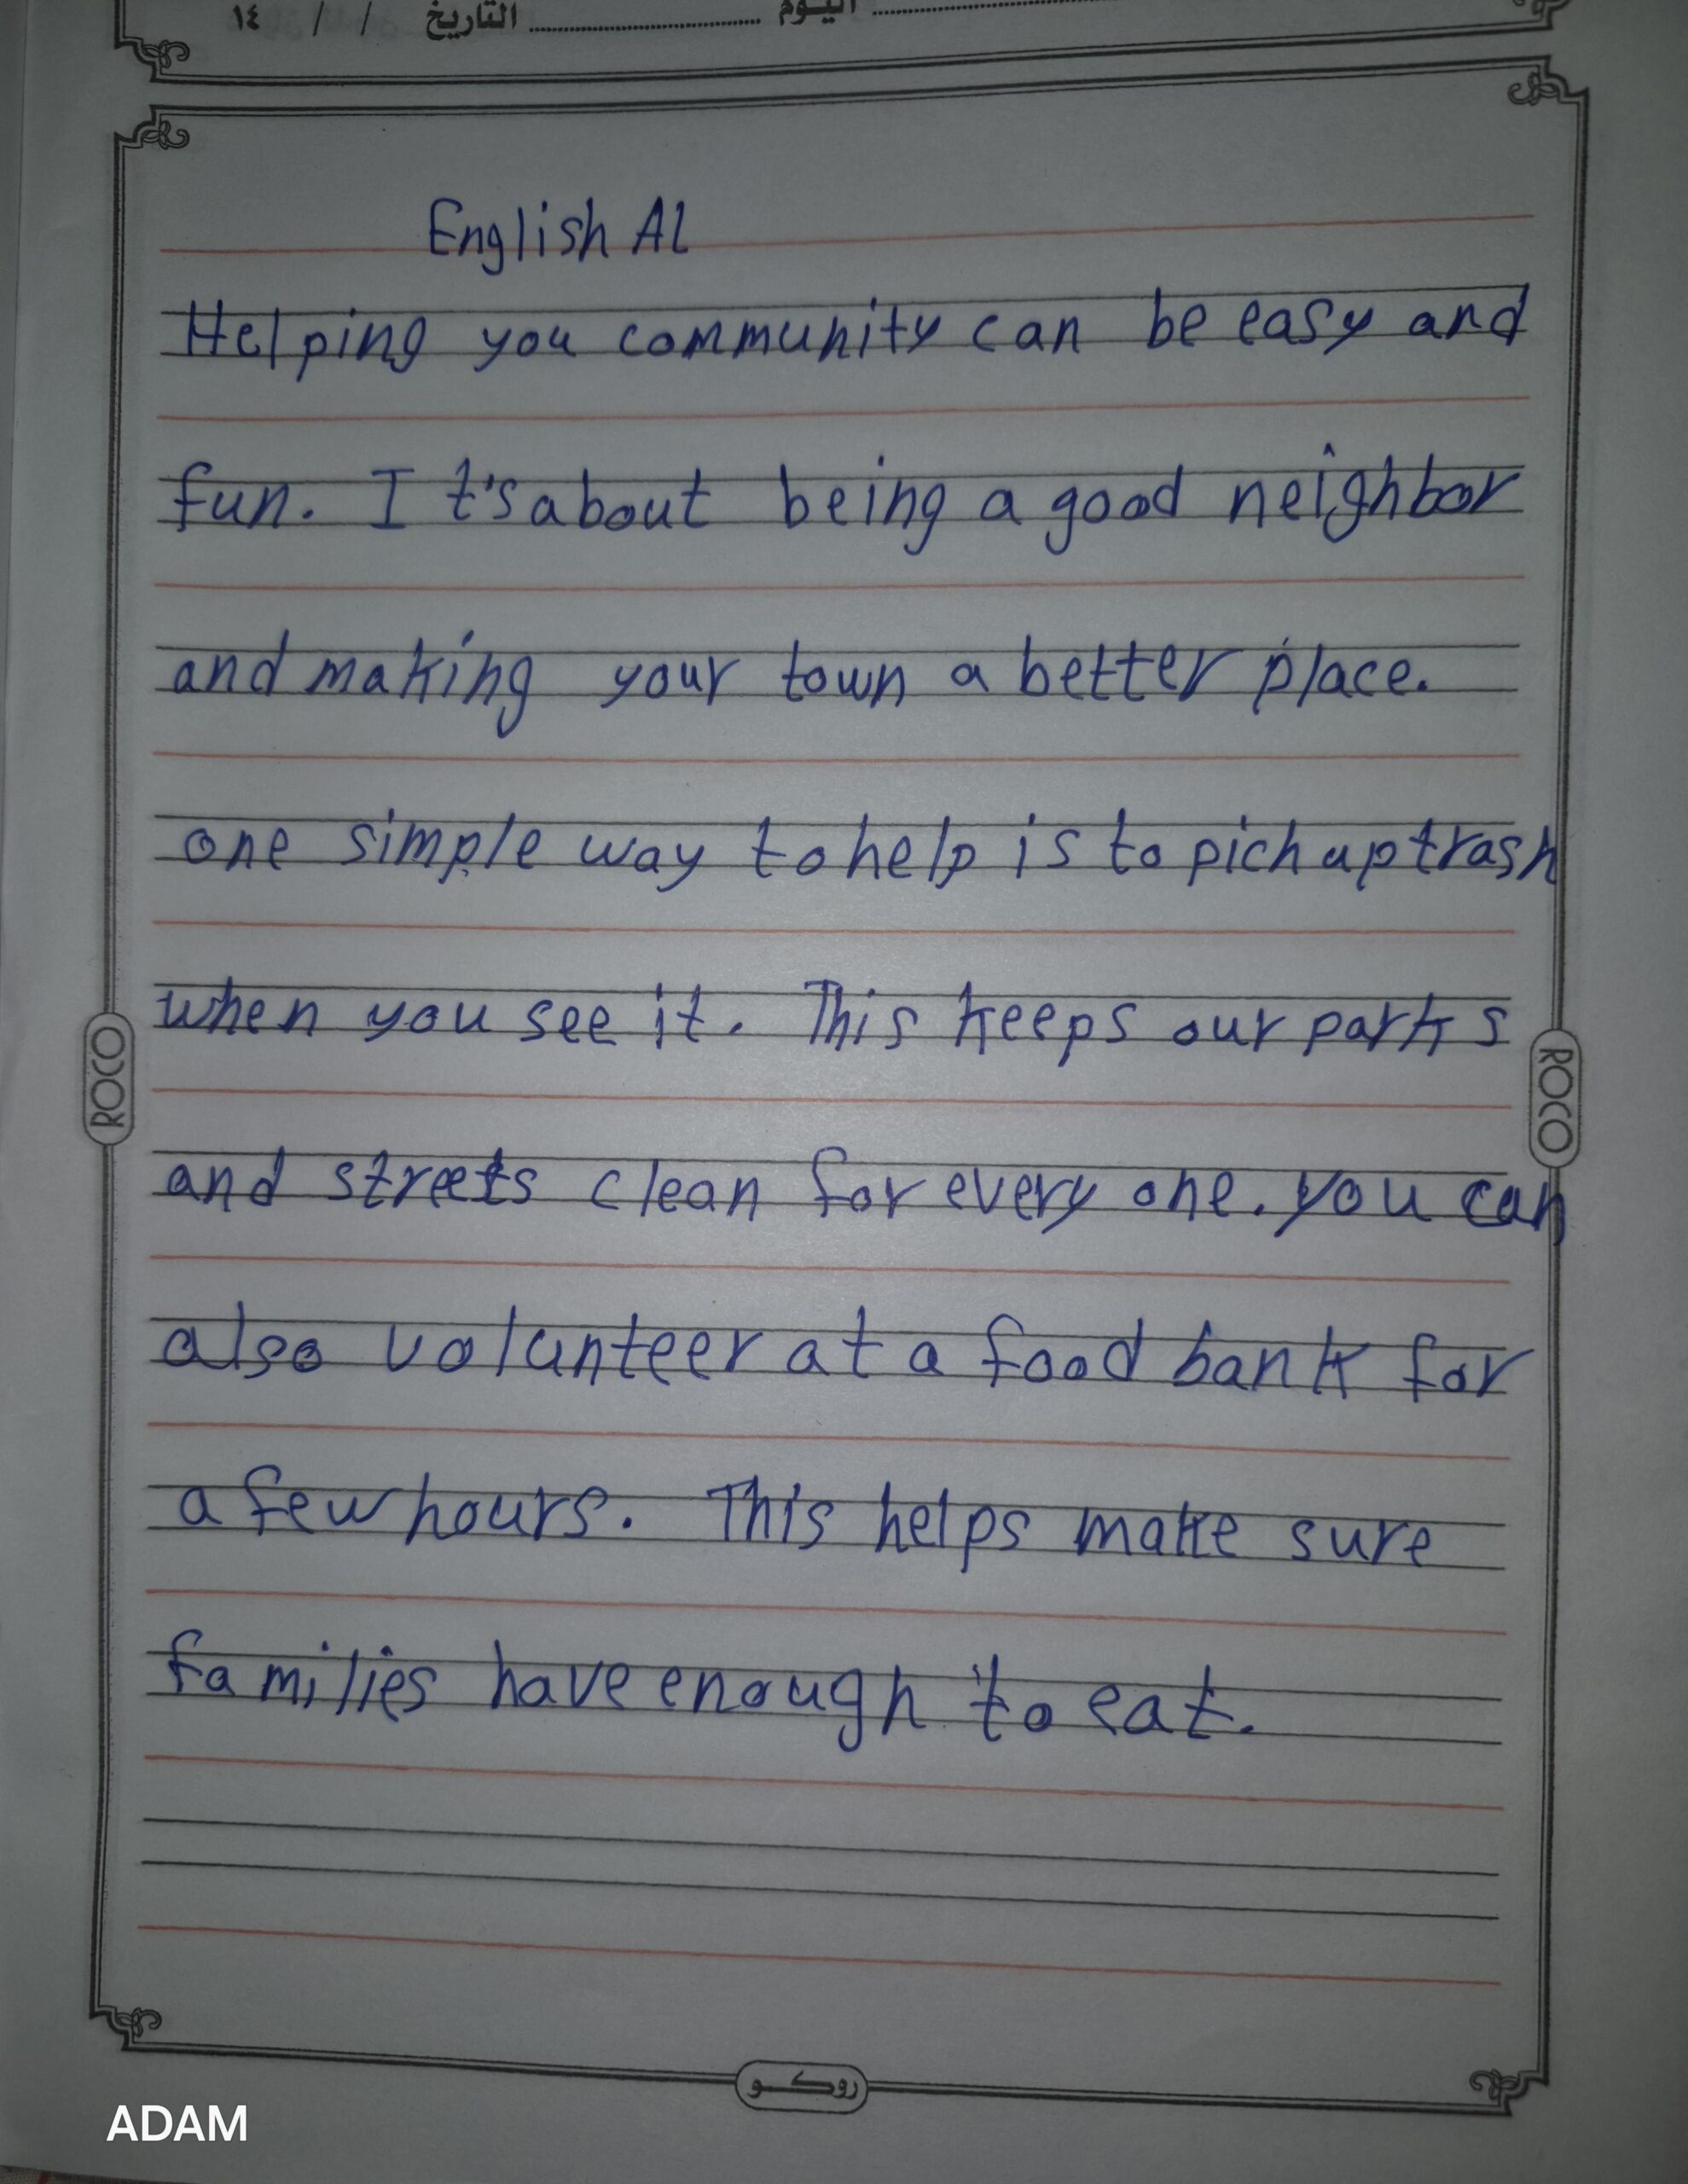 ١٤ / / التاريخ اليوم
English Al
Helping you community can be easy and
fun. I t's about being a good neighbor
and making your town a better place.
one simple way to help is to pich up trash
when you see it. This keeps our parks
and streets clean for every one. you can
also volunteer at a food bank for
a few hours. This helps make sure
families have enough to eat.
ROCO
ROCO
روكو
ADAM